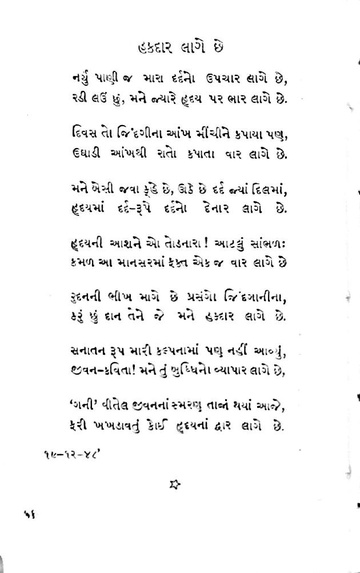 હકદાર લાગે છે
નર્યું પાણી જ મારા દર્દનો ઉપચાર લાગે છે,
રડી લઉં છું, મને જ્યારે હૃદય પર ભાર લાગે છે.
દિવસ તો જિંદગીના આંખ મીંચીને કપાયા પણ,
ઉઘાડી આંખથી રાતો કપાતા વાર લાગે છે.
મને બેસી જવા કૂહે છે, ઊઠે છે દર્દ જ્યાં દિલમાં,
હૃદયમાં દર્દ-રૂપે દર્દનો દેનાર લાગે છે.
હૃદયની આશને ઓ તોડનારા! આટલું સાંભળઃ
કમળ આ માનસરમાં ફક્ત એક જ વાર લાગે છે
રુદનની ભીખ માગે છે પ્રસંગો જિંદગાનીના,
કરું છું દાન તેને જે મને હકદાર લાગે છે.
સનાતન રૂપ મારી કલ્પનામાં પણ નહીં આવ્યું,
જીવન-કવિતા! મને તું બુધ્ધિનો વ્યાપાર લાગે છે,
‘ગની’ વીતેલ જીવનનાં સ્મરણ તાજાં થયાં આજે,
ફરી ખખડાવતું કોઈ હૃદયનાં દ્વાર લાગે છે.
૧૯-૧૨-૪૮'
૫૬